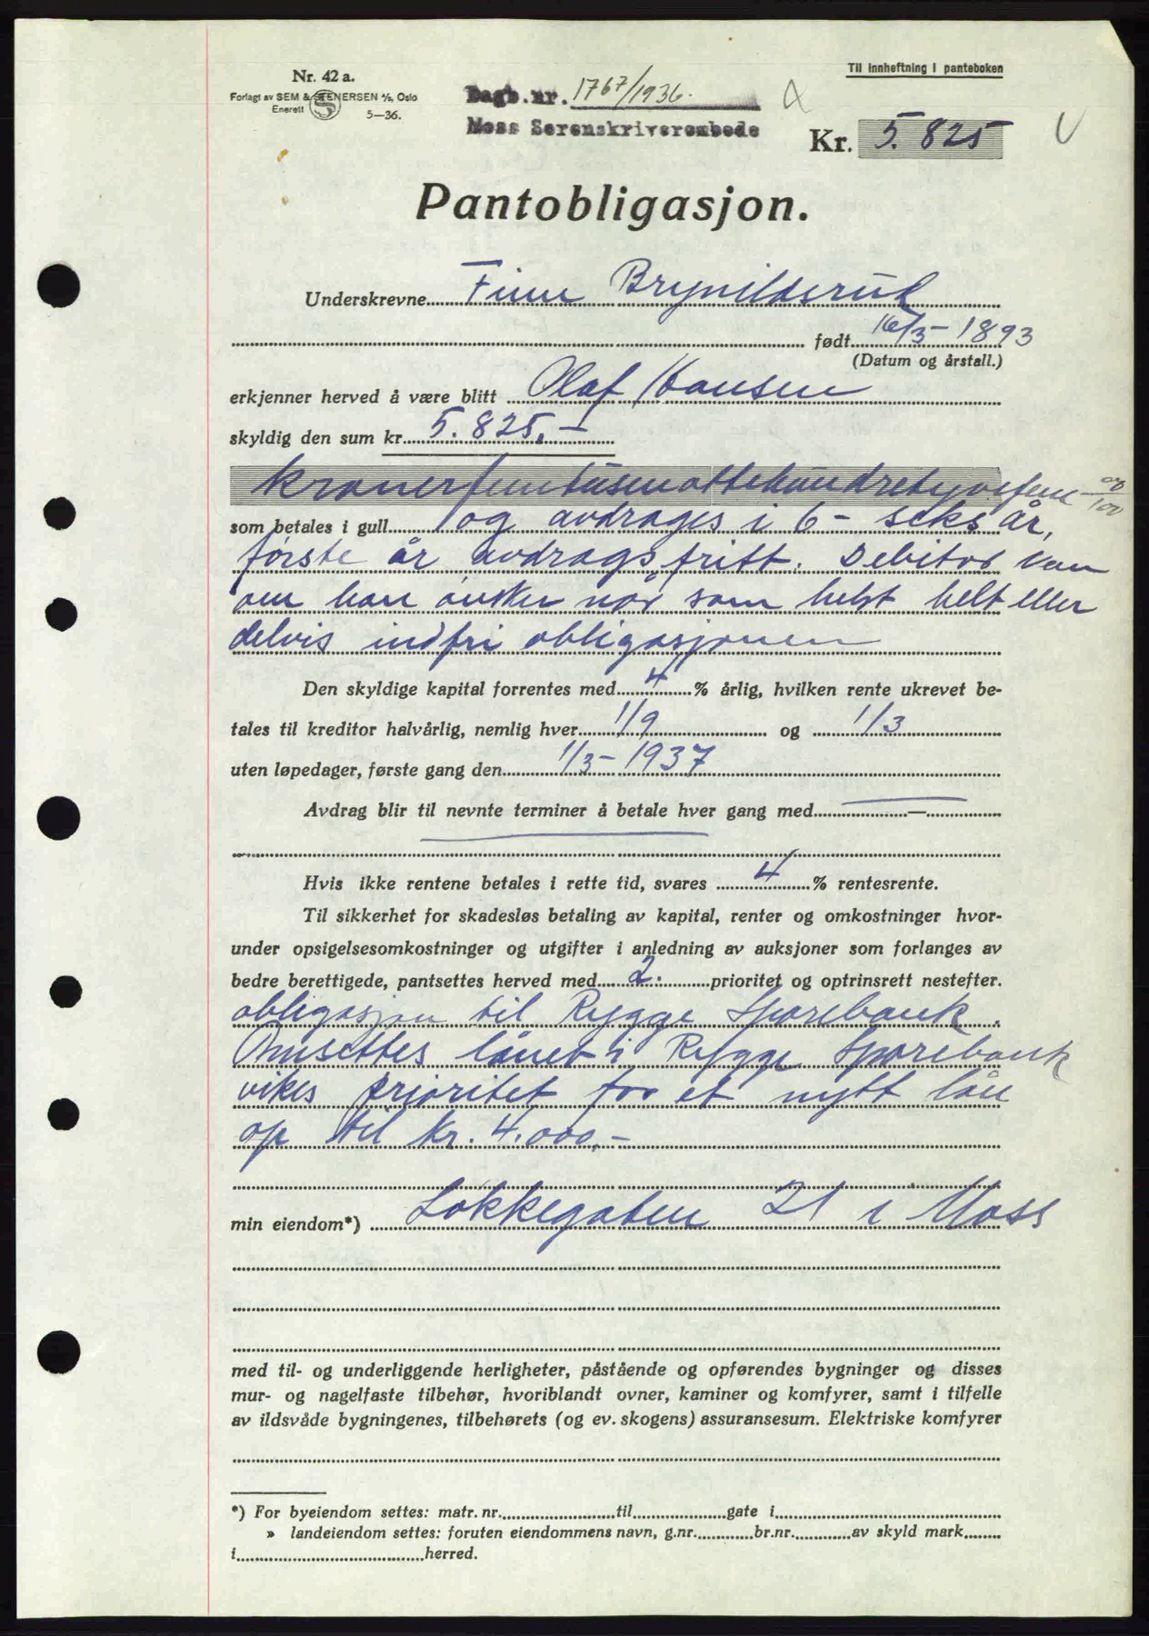 Til innheftning i panteboken
Nr. 42 a.
Forlagt av SEM & STENERSEN A/S, Oslo
Enerett 5—36.
Dagb.nr. 1767/1936.
Moss Sorenskriverembede
Kr. 5.825
Pantobligasjon.
Underskrevne Finn Brynildsrud
født 16/3-1893
(Datum og årstall.)
erkjenner herved å være blitt Olaf Hansen
skyldig den sum kr. 5.825,-
kroner femtusenottehundretyvefem 00/100
som betales i gull og avdrages i 6- seks år,
første år avdragsfritt. Debitor kan
om han ønsker når som helst helt eller
delvis indfri obligasjonen
Den skyldige kapital forrentes med 4 % årlig, hvilken rente ukrevet be-
tales til kreditor halvårlig, nemlig hver 1/9 og 1/3
uten løpedager, første gang den 1/3-1937
Avdrag blir til nevnte terminer å betale hver gang med —
Hvis ikke rentene betales i rette tid, svares 4 % rentesrente.
Til sikkerhet for skadesløs betaling av kapital, renter og omkostninger hvor-
under opsigelsesomkostninger og utgifter i anledning av auksjoner som forlanges av
bedre berettigede, pantsettes herved med 2. prioritet og optrinsrett nestefter.
obligasjon til Rygge Sparebank.
Omsettes lånet i Rygge Sparebank
vikes prioritet for et nytt lån
op til kr. 4.000,-
min eiendom*) Løkkegaten 21 i Moss
med til- og underliggende herligheter, påstående og opførendes bygninger og disses
mur- og nagelfaste tilbehør, hvoriblandt ovner, kaminer og komfyrer, samt i tilfelle
av ildsvåde bygningenes, tilbehørets (og ev. skogens) assuransesum. Elektriske komfyrer
*) For byeiendom settes: matr. nr. til gate i
» landeiendom settes: foruten eiendommens navn, g.nr. br.nr. av skyld mark
i herred.